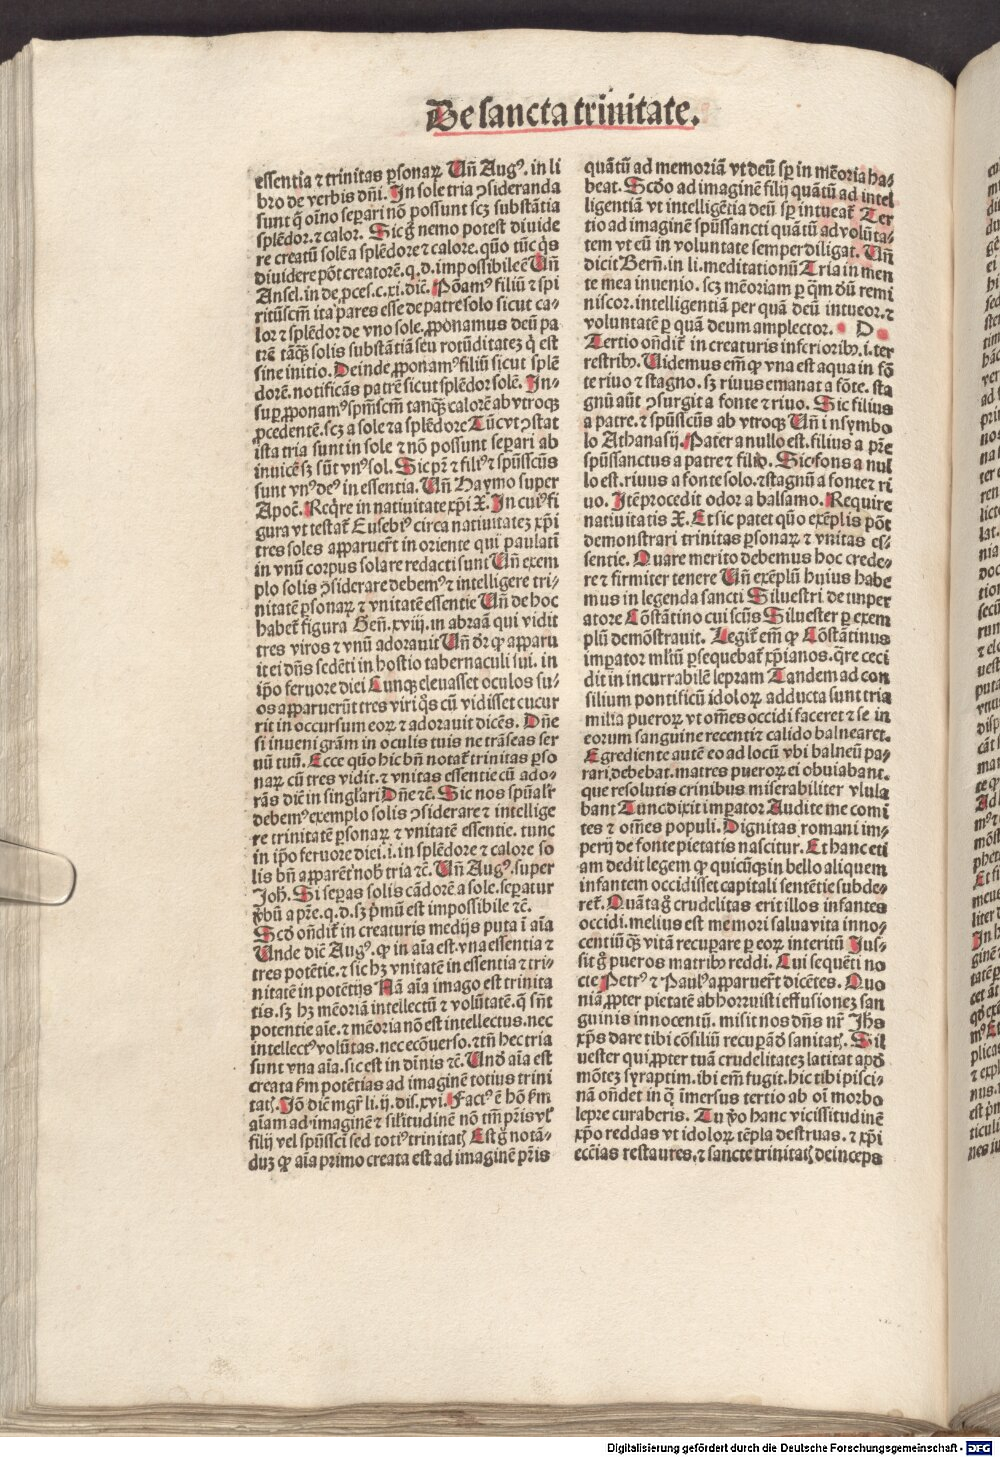 De sancta trinitate.
essentia ⁊ trinitas ꝑsonaꝝ Uñ Augꝰ. in li
bro de verbis dñi. In sole tria ↄsideranda
sunt q̄ oīno seꝑari nō possunt scꝫ substātia
splēdor. ⁊ calor. Sic g̊ nemo potest diuide
re creatū solē a splēdore ⁊ calore. quō tūc q̇s
diuidere pōt creatorē. q. d. impossibile ē Uñ
Ansel. in de ꝓces. c. xi. dič. Pōamꝰ filiū ⁊ spi
ritūscm̄ ita pares esse de patre solo sicut ca-
lor ⁊ splēdor de vno sole. ꝓponamus deū pa
trē tāqꝫ solis substātiā seu rotūditatez q̇ est
sine initio. Deinde ꝓponamꝰ filiū sicut splē
dorē. notificās patrē sicut splēdor solē. In-
suꝑ ꝓponamꝰ spm̄scm̄ tanqꝫ calorē ab vtroqꝫ
ꝓcedentē. scꝫ a sole ⁊ a splēdore Tūc vt ↄstat
ista tria sunt in sole ⁊ nō possunt seꝑari ab
inuicē sꝫ sūt vnꝰ sol. Sic pr̄ ⁊ filiꝰ ⁊ spūsscūs
sunt vnꝰ deꝰ in essentia. Uñ Haymo super
Apoč. Req̇re in natiuitate xp̄i X. In cuiꝰ fi
gura vt testat̄ Eusebiꝰ circa natiuitatez xp̄i
tres soles apparuer̄t in oriente qui paulati
in vnū corpus solare redacti sunt Uñ exem
plo solis ↄsiderare debemꝰ ⁊ intelligere tri-
nitatē ꝑsonaꝝ ⁊ vnitatē essentie Uñ de hoc
habet̄ figura Geñ. xviij. in abraā qui vidit
tres viros ⁊ vnū adorauit Uñ dr̄ ꝙ apparu
it ei dn̄s sedēti in hostio tabernaculi sui. in
ip̄o feruore diei Cunqꝫ eleuasset oculos su-
os apparuerūt tres viri q̇s cū vidisset cucur
rit in occursum eoꝝ ⁊ adorauit dicēs. Dn̄e
si inueni grām in oculis tuis ne trāseas ser
uū tuū. Ecce quō hic bn̄ notat̄ trinitas ꝑso
naꝝ cū tres vidit. ⁊ vnitas essentie cū ado-
rās dič in singlari Dn̄e ⁊č. Sic nos spūalr̄
debemꝰ exemplo solis ↄsiderare ⁊ intellige
re trinitatē ꝑsonaꝝ ⁊ vnitatē essentie. tunc
in ip̄o feruore diei. i. in splēdore ⁊ calore so
lis bn̄ apparēt nob̄ tria ⁊č. Uñ Augꝰ. super
Joh̄. Si seꝑas solis cādorē a sole. seꝑatur
v̇bū a pr̄e. q. d. sꝫ ṗmū est impossibile ⁊č.
Scd̄o on̄dit̄ in creaturis medijs puta ī aīa
Unde dič Augꝰ. ꝙ in aīa est vna essentia ⁊
tres potētie. ⁊ sic hꝫ vnitatē in essentia ⁊ tri-
nitatē in potētijs Nā aīa imago est trinita
tis. sꝫ hꝫ mēoriā intellectū ⁊ volūtatē. q̄ sn̄t
potentie aīe. ⁊ mēoria nō est intellectus. nec
intellectꝰ volūtas. nec ecōuerso. ⁊ tn̄ hec tria
sunt vna aīa. sic est in diuīnis ⁊č. Und̄ aīa est
creata fm̄ potētias ad imaginē totius trini
tatꝭ. Jō dič mgr̄ li. ij. dis. xvi. Factꝰ ē hō fm̄
aīam ad imaginē ⁊ silitudinē nō tm̄ pr̄is vl̕
filij vel spūssci sed totiꝰ trinitatꝭ Est g̊ notā-
duꝫ ꝙ aīa primo creata est ad imaginē pr̄is
quātū ad memoriā vt deū sp̄ in mēoria ha-
beat. Scd̄o ad imaginē filij quātū ad intel
ligentiā vt intelligētia deū sp̄ intueat̄ Ter
tio ad imaginē spūssancti quātū ad volūta-
tem vt eū in voluntate semper diligat. Uñ
dicit Berñ. in li. meditationū Tria in men
te mea inuenio. scꝫ mēoriam ꝑ q̄m dū remi
niscor. intelligentiā per quā deū intueor. ⁊
voluntatē ꝑ quā deum amplector. D
Tertio on̄dit̄ in creaturis inferioribꝰ. i. ter
restribꝰ. Uidemus em̄ ꝙ vna est aqua in fō
te riuo ⁊ stagno. sꝫ riuus emanat a fōte. sta
gnū aūt ↄsurgit a fonte ⁊ riuo. Sic filius
a patre. ⁊ spūsscūs ab vtroqꝫ Uñ in symbo
lo Athanasij. Pater a nullo est. filius a pr̄e
spūssanctus a patre ⁊ filio. Sic fons a nul
lo est. riuus a fonte solo. ⁊ stagnū a fonte ⁊ ri
uo. Itē procedit odor a balsamo. Require
natiuitatis X. Et sic patet quō exēplis pōt
demonstrari trinitas ꝑsonaꝝ ⁊ vnitas es-
sentie. Quare merito debemus hoc crede-
re ⁊ firmiter tenere Uñ exēplū huius habe
mus in legenda sancti Siluestri de imper
atore Cōstātino cui scūs Siluester ꝑ exem
plū demōstrauit. Legit̄ em̄ ꝙ Cōstātinus
imꝑator mltū ꝑsequebat̄ xp̄ianos. q̄re ceci
dit in incurrabilē lepram Tandem ad con
silium pontificū idoloꝝ adducta sunt tria
milia pueroꝝ vt om̄es occidi faceret ⁊ se in
eorum sanguine recenti ⁊ calido balnearet.
Egrediente autē eo ad locū vbi balneū pa-
rari debebat. matres pueroꝝ ei obuiabant.
que resolutis crinibus miserabiliter vlula
bant Tunc dixit imꝑator Audite me comi
tes ⁊ om̄es populi. Dignitas romani im-
perij de fonte pietatis nascitur. Et hanc eti
am dedit legem ꝙ quicūqꝫ in bello aliquem
infantem occidisset capitali sentētie subde-
ret̄. Quāta g̊ crudelitas erit illos infantes
occidi. melius est me mori salua vita inno-
centiū qꝫ vitā recuꝑare ꝑ eoꝝ interitū Jus-
sit g̊ pueros matribꝰ reddi. Cui sequēti no
cte Petrꝰ ⁊ Paulꝰ apparuer̄t dicētes. Quo
niā ꝓpter pietatē abhorruisti effusionez san
guinis innocentū. misit nos dn̄s nr̄ Jhs
xp̄s dare tibi cōsiliū recuꝑād̄ sanitatꝭ. Sil
uester qui ꝓpter tuā crudelitatez latitat apd̄
mōtez syraptim. ibi em̄ fugit. hic tibi pisci-
nā on̄det in q̄ īmersus tertio ab oī morbo
lepre curaberis. Tu v̇o hanc vicissitudinē
xp̄o reddas vt idoloꝝ tēpla destruas. ⁊ xp̄i
ecc̄ias restaures. ⁊ sancte trinitatꝭ deinceps
Digitalisierung gefördert durch die Deutsche Forschungsgemeinschaft - DFG